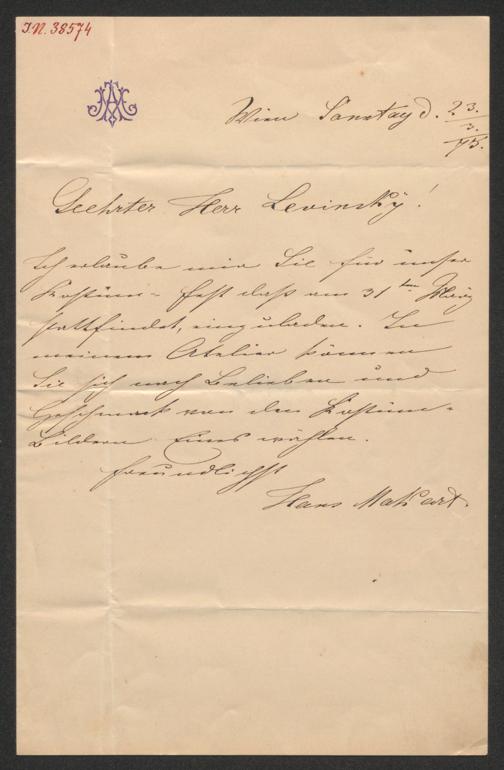 I.N. 38574
Wien Samstag d. 23./3. 75.
Geehrter Herr Levinsky!
Ich erlaube mir Sie für unser
Kostüm-Fest daß am 31ten März
stattfindet, einzuladen. In
meinem Atelier können
Sie sich nach Belieben und
Geschmack von den Kostüm-
Bildern Eines wählen.
freundlichst
Hans Makart.